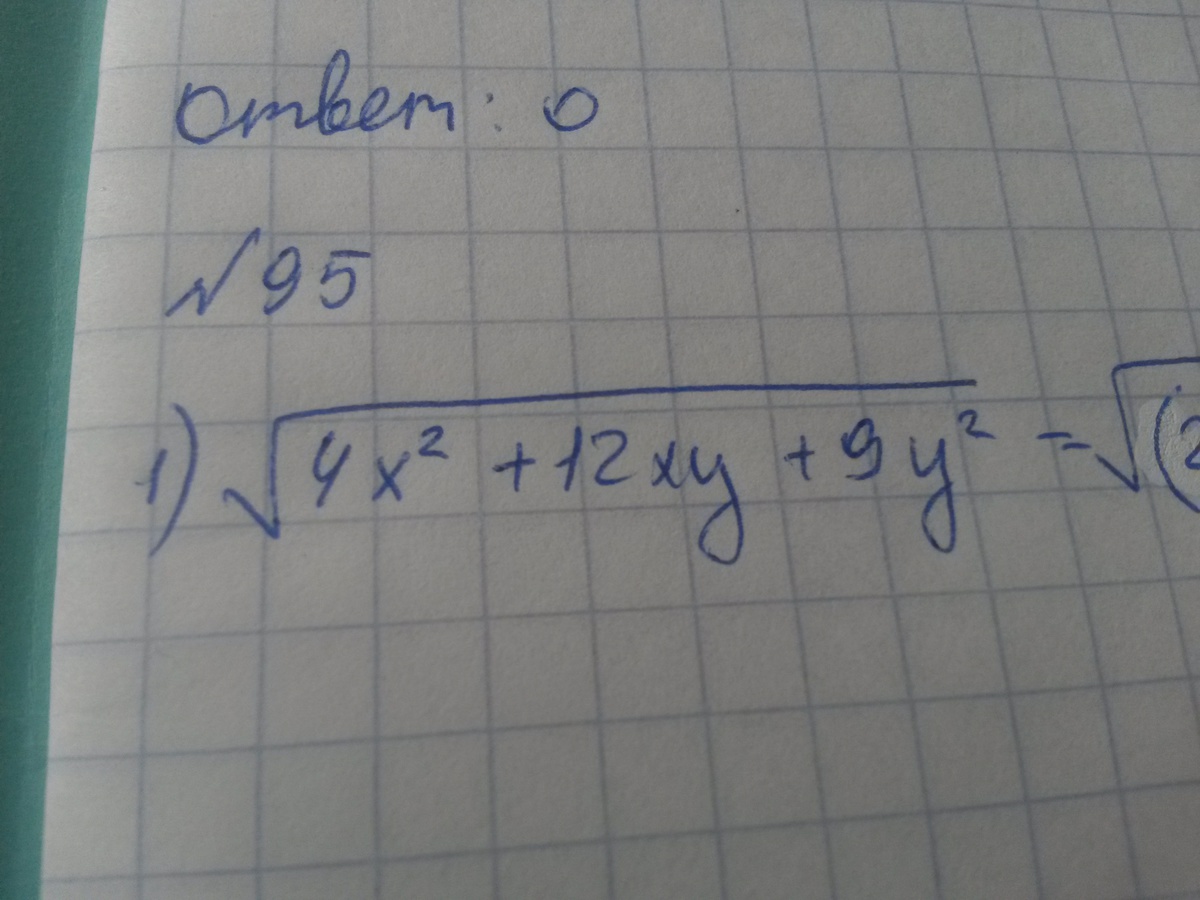 Ответ: 0
№95
1) √4x² + 12xy + 9y² = √(2